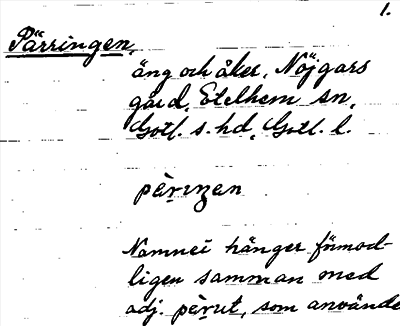 1.
Pärringen,
äng och åker, Nöjgars
gård, Etelhem sn,
Gotl. s. hd, Gotl. l.
pèrıŋen
Namnet hänger förmod-
ligen samman med
adj. pèrut, som använde